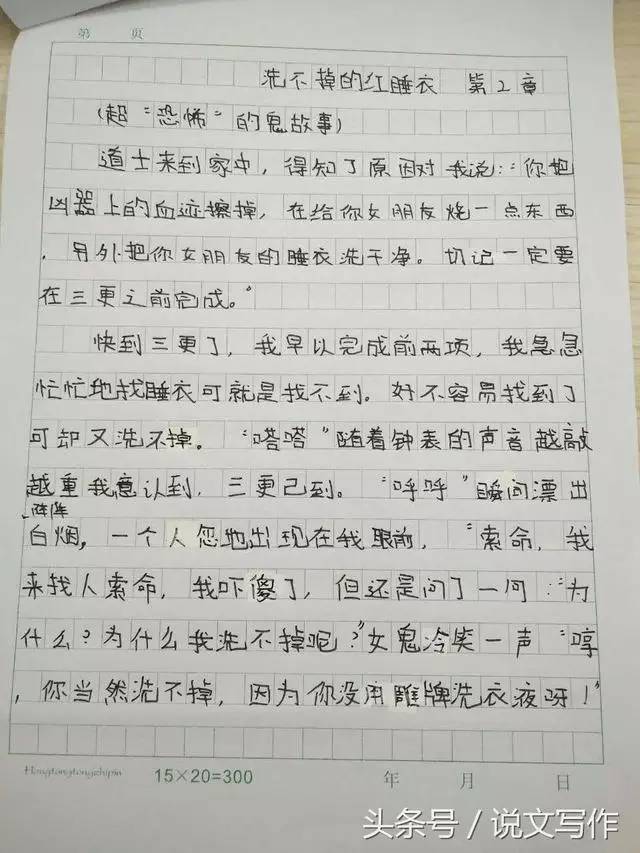 第 页
洗不掉的红睡衣 第2章
(超“恐怖”的鬼故事)
道士来到家中，得知了原因对我说：“你把
凶器上的血迹擦掉，在给你女朋友烧一点东西
，另外把你女朋友的睡衣洗干净。切记一定要
在三更之前完成。”
快到三更了，我早以完成前两项，我急急
忙忙地找睡衣可就是找不到。好不容易找到了
可却又洗不掉。“嗒嗒”随着钟表的声音越敲
越重我意认到，三更已到。“呼呼”瞬间漂出
阵阵
白烟，一个人忽地出现在我眼前，“索命，我
来找人索命，我吓傻了，但还是问了一句：“为
什么？为什么我洗不掉呢？”女鬼冷笑一声“哼
，你当然洗不掉，因为你没用雕牌洗衣液呀！”
Hongtongtongzhipin 15×20=300 年 月 日
头条号 / 说文写作